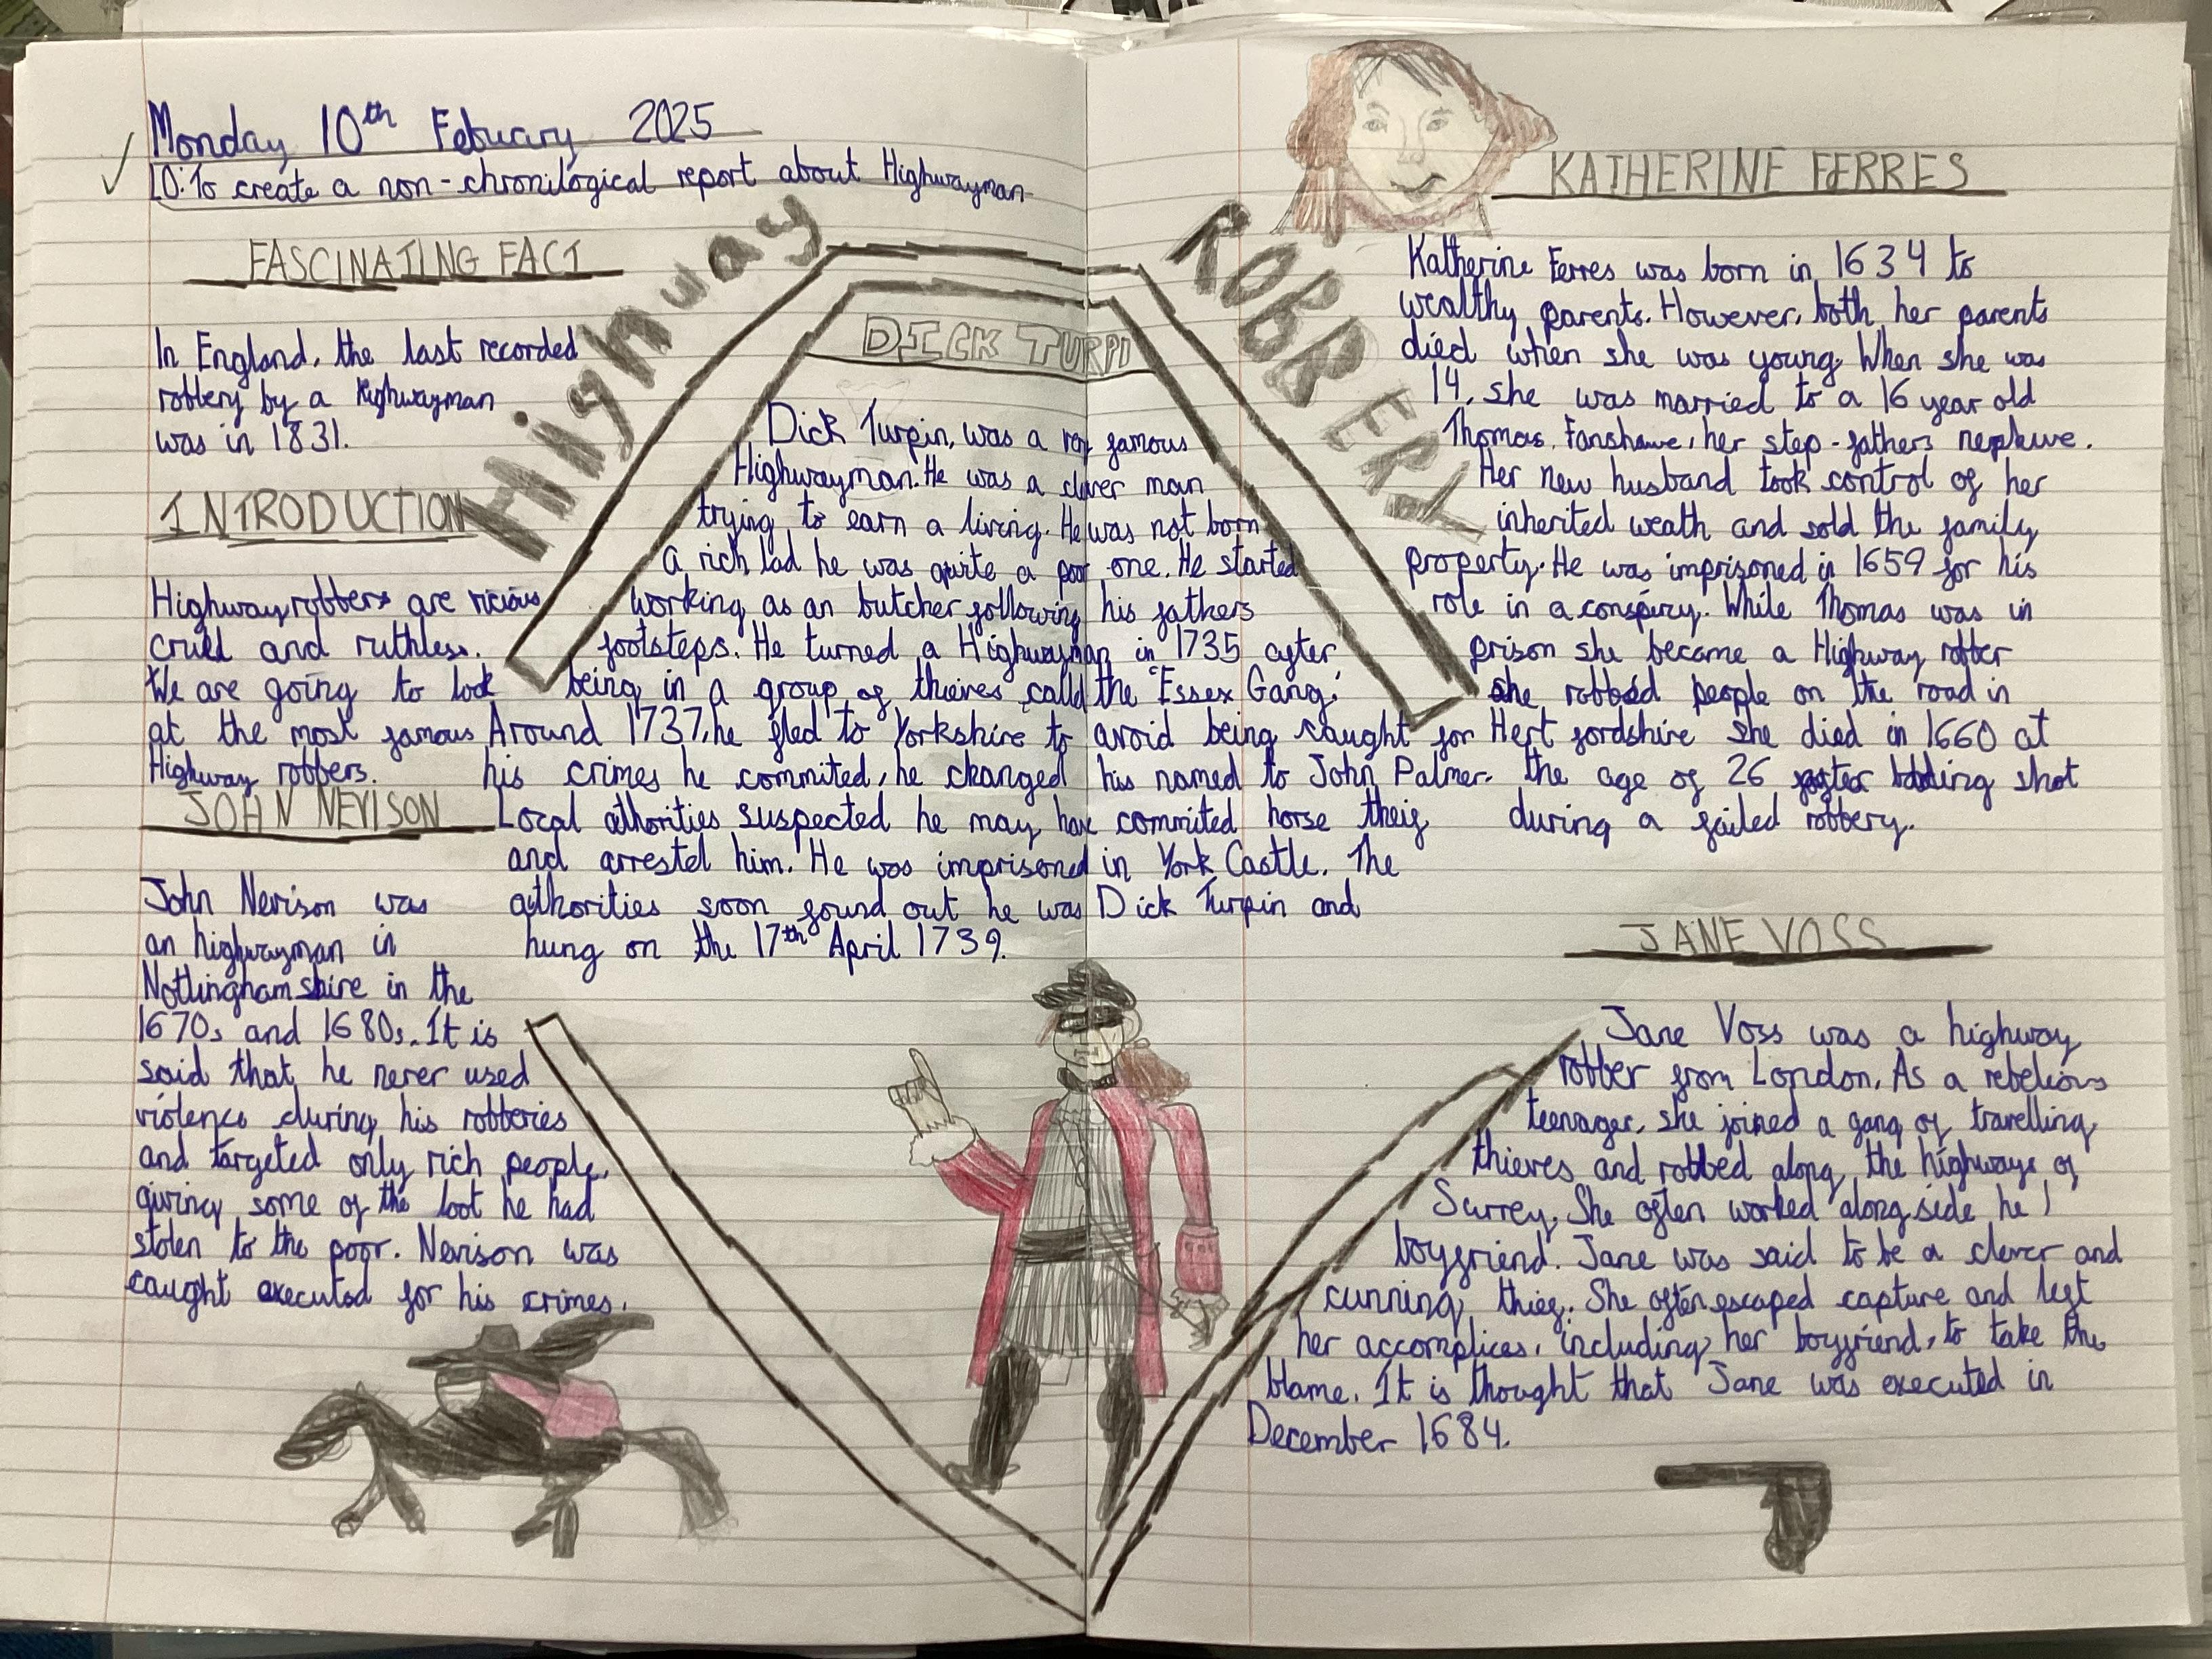 Monday 10th Febuary 2025
LO: To create a non-chronilogical report about Highwayman
Highway
ROBBERY
FASCINATING FACT
In England, the last recorded
robbery by a highwayman
was in 1831.
INTRODUCTION
Highway robbers are vicious
cruel and ruthless.
We are going to look
at the most famous
Highway robbers.
JOHN NEVISON
John Nevison was
an highwayman in
Nottinghamshire in the
1670s and 1680s. It is
said that he never used
violence during his robberies
and targeted only rich people,
giving some of the loot he had
stolen to the poor. Nevison was
caught executed for his crimes.
DICK TURPI
Dick Turpin, was a very famous
Highwayman. He was a clever man
trying to earn a living. He was not born
a rich lad he was quite a poor one. He started
working as an butcher following his fathers
footsteps. He turned a Highwayman in 1735 after
being in a group of thieves calld the "Essex Gang.'
Around 1737, he fled to Yorkshire to avoid being caught for
his crimes he commited, he changed his named to John Palmer.
Local athorities suspected he may have commited horse theif
and arrested him. He was imprisoned in York Castle. The
authorities soon found out he was Dick Turpin and
hung on the 17th April 1739.
KATHERINE FERRES
Katherine Ferres was born in 1634 to
wealthy parents. However, both her parents
died when she was young. When she was
14, she was married to a 16 year old
Thomas, Fanshawe, her step-fathers nephwe.
Her new husband took control of her
inherited weath and sold the family
property. He was imprisoned in 1659 for his
role in a conspiry. While Thomas was in
prison she became a Highway robber
she robbed people on the road in
Hertfordshire She died in 1660 at
the age of 26 after being shot
during a failed robbery.
JANE VOSS
Jane Voss was a highway
robber from London. As a rebelious
teenager, she joined a gang of travelling
thieves and robbed along the highways of
Surrey. She often worked alongside her
boyfriend. Jane was said to be a clever and
cunning thief. She often escaped capture and left
her accomplices, including her boyfriend, to take the
blame. It is thought that Jane was executed in
December 1684.